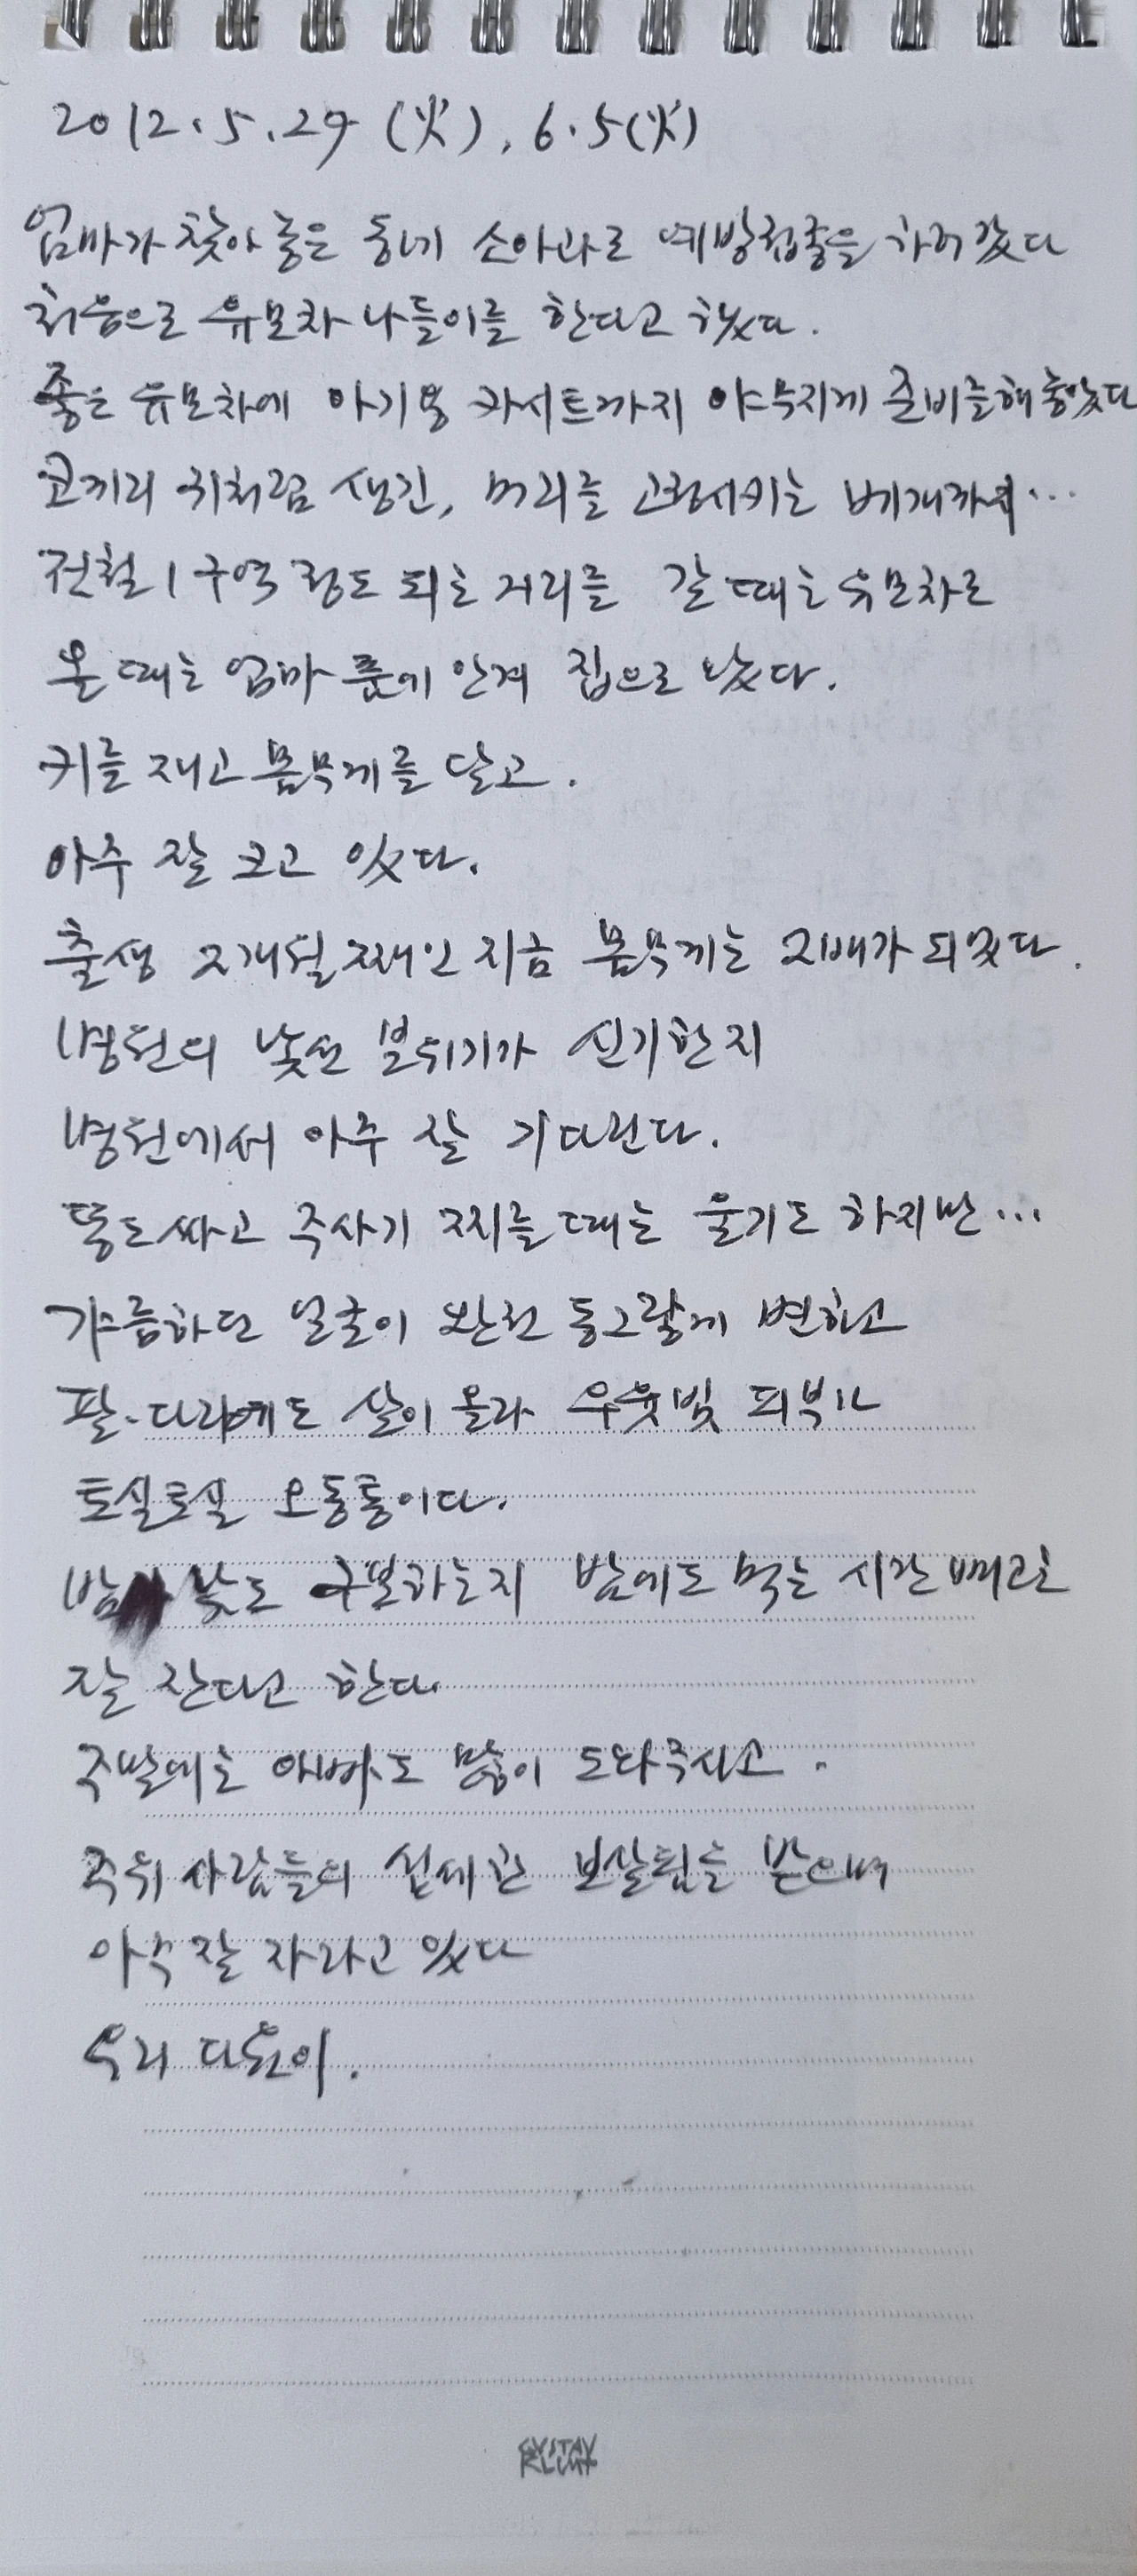 2012. 5. 29 (火), 6. 5 (火)
엄마가 찾아 놓은 동네 소아과로 예방접종을 하러 갔다
처음으로 유모차 나들이를 한다고 했다.
좋은 유모차에 아기용 카시트까지 야무지게 준비를 해 놓았다
코끼리 귀처럼 생긴, 머리를 고정시키는 베개까지...
전철 1구역 정도 되는 거리를 갈 때는 유모차로
올 때는 엄마 품에 안겨 집으로 왔다.
키를 재고 몸무게를 달고.
아주 잘 크고 있다.
출생 2개월째인 지금 몸무게는 2배가 되었다.
병원의 낯선 분위기가 신기한지
병원에서 아주 잘 기다린다.
똥도 싸고 주사기 찌를 때는 울기도 하지만...
갸름하던 얼굴이 완전 동그랗게 변하고
팔·다리에도 살이 올라 우윳빛 피부로
토실토실 오동통이다.
밤 낮도 구별하는지 밤에도 먹는 시간 빼고는
잘 잔다고 한다.
주말에는 아빠도 많이 도와주시고.
주위 사람들의 섬세한 보살핌을 받으며
아주 잘 자라고 있다
우리 다온이.
GUSTAV
KLIMT